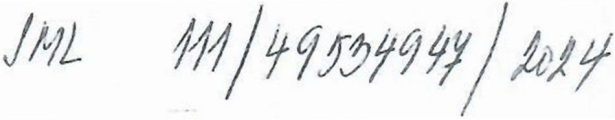 JML 111/49534947/2024